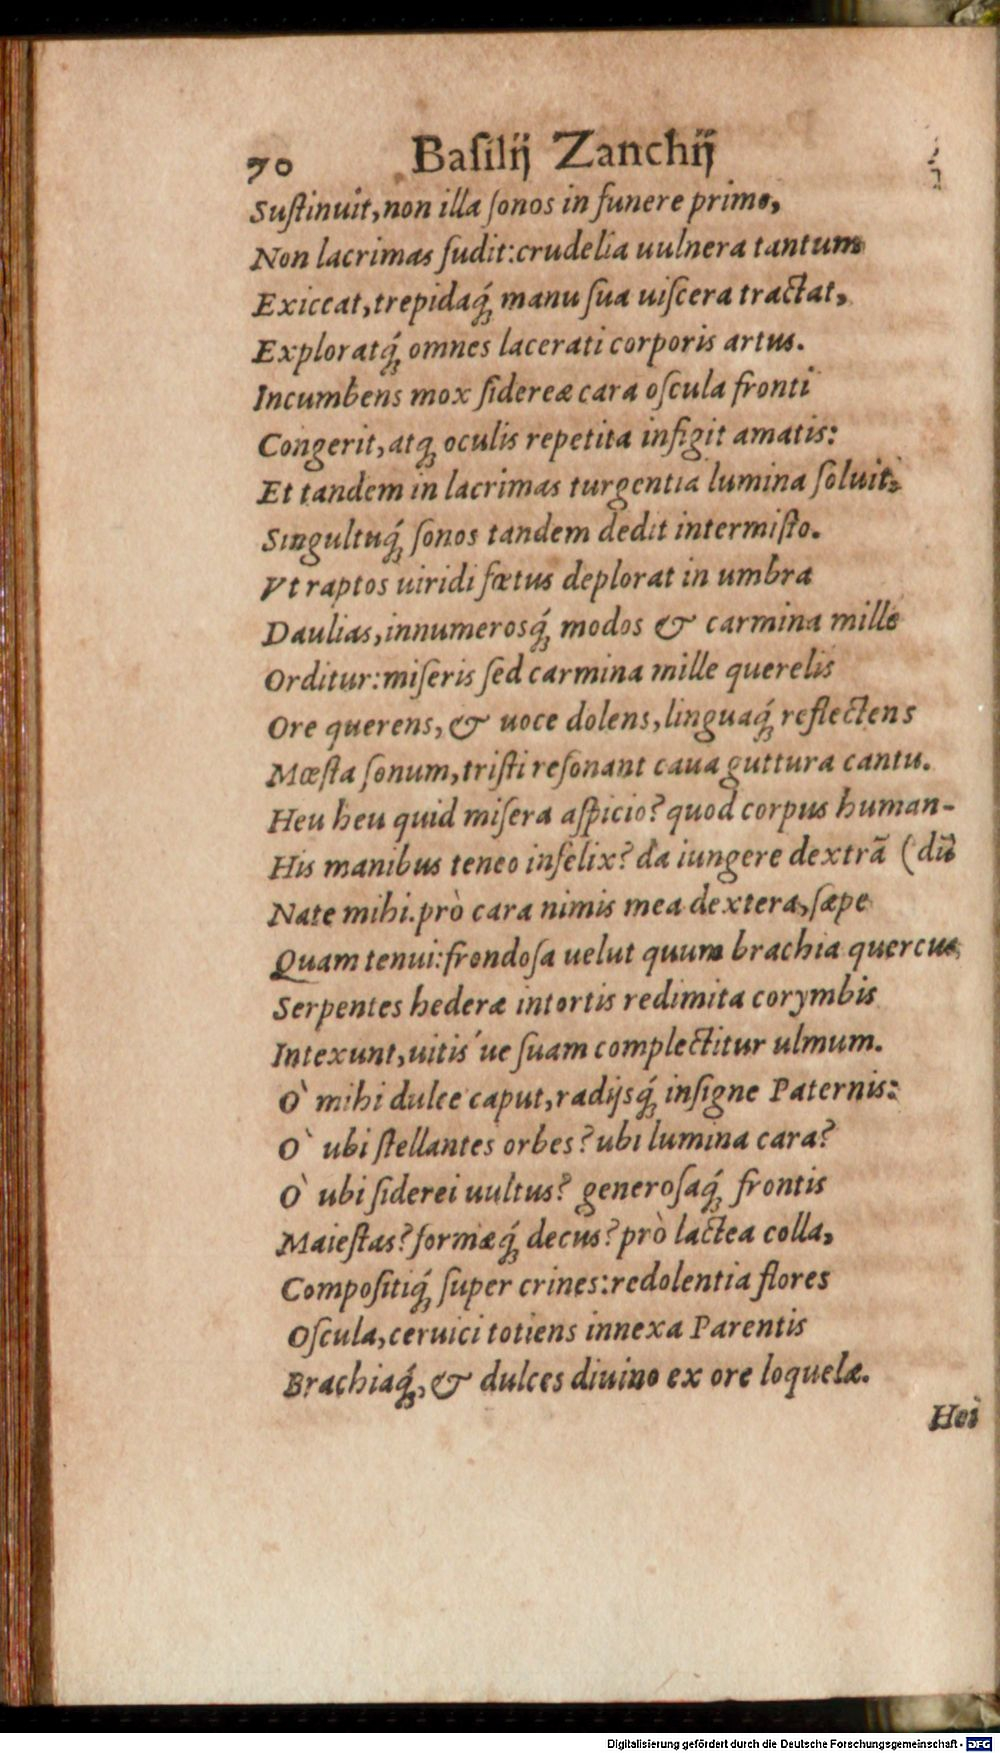 70 Baſilij Zanchij
Suſtinuit, non illa ſonos in funere primo,
Non lacrimas fudit: crudelia uulnera tantum
Exiccat, trepidaq́; manu ſua uiſcera tractat,
Exploratq́; omnes lacerati corporis artus.
Incumbens mox ſidereæ cara oſcula fronti
Congerit, atq; oculis repetita infigit amatis:
Et tandem in lacrimas turgentia lumina ſoluit:
Singultuq́; ſonos tandem dedit intermiſto.
Vt raptos uiridi fœtus deplorat in umbra
Daulias, innumerosq́; modos & carmina mille
Orditur: miſeris ſed carmina mille querelis
Ore querens, & uoce dolens, linguaq́; reflectens
Mœſta ſonum, triſti reſonant caua guttura cantu.
Heu heu quid miſera aſpicio? quod corpus human-
His manibus teneo infelix? da iungere dextrā (dū
Nate mihi. prò cara nimis mea dextera, ſæpe
Quam tenui: frondoſa uelut quum brachia quercus
Serpentes hederæ intortis redimita corymbis
Intexunt, uitis ́ue ſuam complectitur ulmum.
O` mihi dulce caput, radijsq́; inſigne Paternis:
O` ubi ſtellantes orbes? ubi lumina cara?
O` ubi ſiderei uultus? generoſaq́; frontis
Maieſtas? formæq́; decus? prò lactea colla,
Compoſitiq́; ſuper crines: redolentia flores
Oſcula, ceruici totiens innexa Parentis
Brachiaq́;, & dulces diuino ex ore loquelæ.
Hei
Digitalisierung gefördert durch die Deutsche Forschungsgemeinschaft - DFG